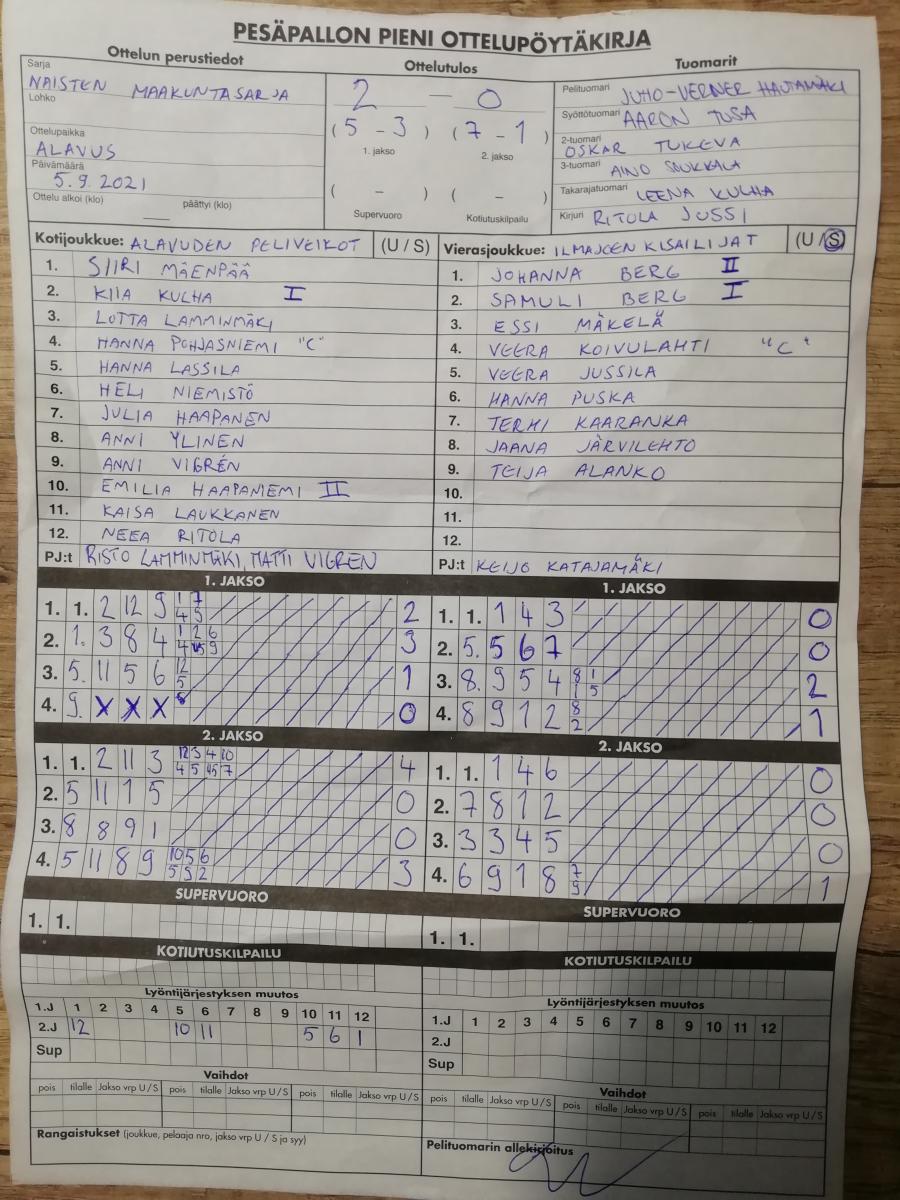 PESÄPALLON PIENI OTTELUPÖYTÄKIRJA
Ottelun perustiedot
Ottelutulos
Tuomarit
Sarja
NAISTEN MAAKUNTASARJA
Lohko
Ottelupaikka
ALAVUS
Päivämäärä
5.9.2021
Ottelu alkoi (klo) päättyi (klo)
2 — 0
(5 - 3) (7 - 1)
1. jakso 2. jakso
( - ) ( - )
Supervuoro Kotiutuskilpailu
Pelituomari JUHO-VERNER HAUTAMÄKI
Syöttötuomari AARON TUSA
2-tuomari
OSKAR TUKEVA
3-tuomari AINO SOUKKALA
Takarajatuomari LEENA KULHA
Kirjuri RITOLA JUSSI
Kotijoukkue: ALAVUDEN PELIVEIKOT (U / S)
1. SIIRI MÄENPÄÄ
2. KIIA KULHA I
3. LOTTA LAMMINMÄKI
4. HANNA POHJASNIEMI "C"
5. HANNA LASSILA
6. HELI NIEMISTÖ
7. JULIA HAAPANEN
8. ANNI YLINEN
9. ANNI VIGRÉN
10. EMILIA HAAPANIEMI II
11. KAISA LAUKKANEN
12. NEEA RITOLA
PJ:t RISTO LAMMINMÄKI, MATTI VIGREN
Vierasjoukkue: ILMAJOEN KISAILIJAT (U / S)
1. JOHANNA BERG II
2. SAMULI BERG I
3. ESSI MÄKELÄ
4. VEERA KOIVULAHTI "C"
5. VEERA JUSSILA
6. HANNA PUSKA
7. TERHI KAARANKA
8. JAANA JÄRVILEHTO
9. TEIJA ALANKO
10.
11.
12.
PJ:t KEIJO KATAJAMÄKI
1. JAKSO
1. 1. 2 12 9 1 7 2
4 5
2. 1. 3 8 4 1 2 6 3
3. 5. 11 5 6 12 1
5
4. 9. X X X 0
2. JAKSO
1. 1. 2 11 3 12 3 4 10 4
4 5 7
2. 5 11 1 5 0
3. 8 8 9 1 0
4. 5 11 8 9 10 5 6 3
5 9 2
1. JAKSO
1. 1. 1 4 3 0
2. 5. 5 6 7 0
3. 8. 9 5 4 8 1 2
1 5
4. 8 9 1 2 8 1
2
2. JAKSO
1. 1. 1 4 6 0
2. 7 8 1 2 0
3. 3 3 4 5 0
4. 6 9 1 8 7 1
9
SUPERVUORO
1. 1.
KOTIUTUSKILPAILU
SUPERVUORO
1. 1.
KOTIUTUSKILPAILU
Lyöntijärjestyksen muutos
1.J 1 2 3 4 5 6 7 8 9 10 11 12
2.J 12 10 11 5 6 1
Sup
Vaihdot
pois tilalle Jakso vrp U / S pois tilalle Jakso vrp U / S pois tilalle Jakso vrp U / S
Rangaistukset (joukkue, pelaaja nro, jakso vrp U / S ja syy)
Lyöntijärjestyksen muutos
1.J 1 2 3 4 5 6 7 8 9 10 11 12
2.J
Sup
Vaihdot
pois tilalle Jakso vrp U / S pois tilalle Jakso vrp U / S pois tilalle Jakso vrp U / S
Pelituomarin allekirjoitus